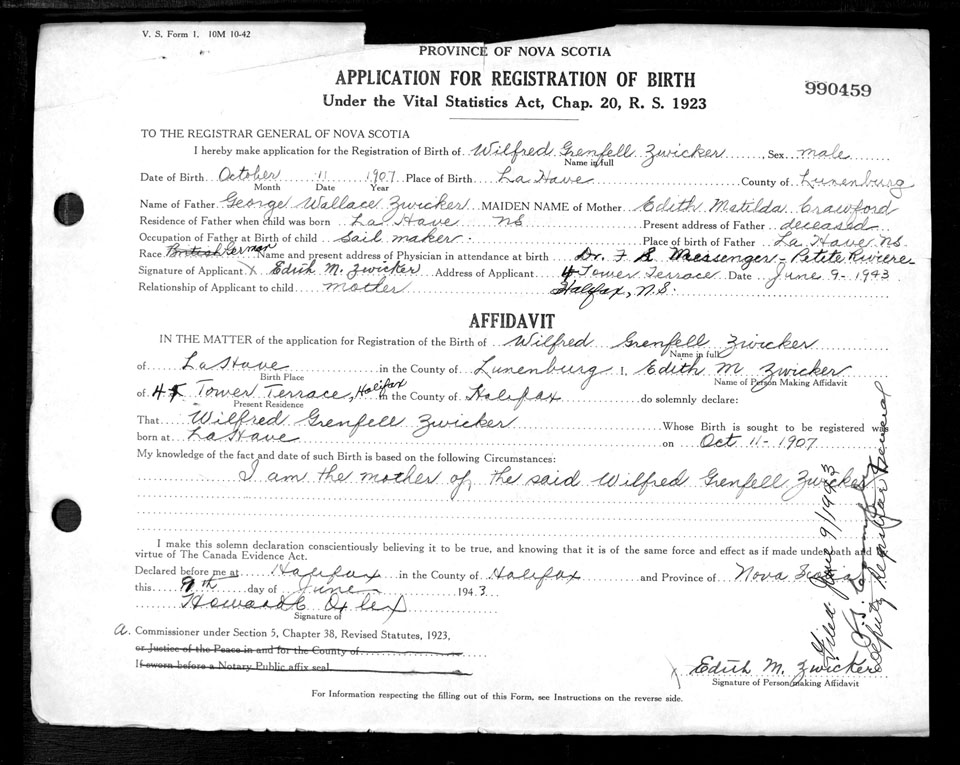 V. S. Form 1. 10M 10-42
PROVINCE OF NOVA SCOTIA
APPLICATION FOR REGISTRATION OF BIRTH
990459
Under the Vital Statistics Act, Chap. 20, R. S. 1923
TO THE REGISTRAR GENERAL OF NOVA SCOTIA
I hereby make application for the Registration of Birth of Wilfred Grenfell Zwicker , Sex male
Name in full
Date of Birth October 11 1907 Place of Birth La Have County of Lunenburg
Month Date Year
Name of Father George Wallace Zwicker MAIDEN NAME of Mother Edith Matilda Crawford
Residence of Father when child was born La Have NS Present address of Father deceased
Occupation of Father at Birth of child Sail maker. Place of Father La Have NS.
Race British German Name and present address of Physician in attendance at birth Dr. F S Messenger - Petite Riviere
Signature of Applicant X Edith M. Zwicker Address of Applicant 4 Tower Terrace Date June 9 - 1943
Relationship of Applicant to child mother Halifax, N.S.
AFFIDAVIT
IN THE MATTER of the application for Registration of the Birth of Wilfred Grenfell Zwicker
Name in full
of LaHave in the County of Lunenburg I, Edith M Zwicker
Birth Place Name of Person Making Affidavit
of 4 Tower Terrace, Halifax in the County of Halifax do solemnly declare:
Present Residence
That Wilfred Grenfell Zwicker Whose Birth is sought to be registered was
born at LaHave on Oct 11 - 1907
My knowledge of the fact and date of such Birth is based on the following Circumstances:
I am the mother of the said Wilfred Grenfell Zwicker
I make this solemn declaration conscientiously believing it to be true, and knowing that it is of the same force and effect as if made under oath and by
virtue of The Canada Evidence Act.
Declared before me at Halifax in the County of Halifax and Province of Nova Scotia
this 9th day of June 1943
Howard
Signature of
A. Commissioner under Section 5, Chapter 38, Revised Statutes, 1923,
or Justice of the Peace in and for the County of
If sworn before a Notary Public affix seal.
X Edith M. Zwicker
Signature of Person making Affidavit
For Information respecting the filling out of this Form, see Instructions on the reverse side.
Filed June 9/1943
Deputy Registrar General